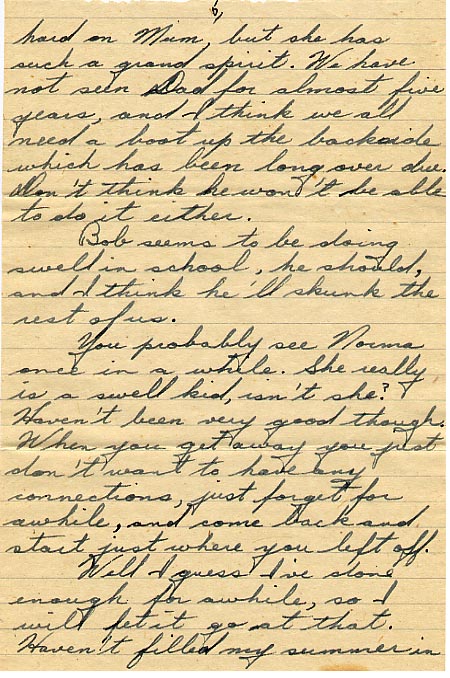 6,
hard on Mum, but she has
such a grand spirit. We have
not seen Dad for almost five
years, and I think we all
need a boot up the backside
which has been long over due.
Don't think he won't be able
to do it either.
Bob seems to be doing
swell in school, he should,
and I think he'll skunk the
rest of us.
You probably see Norma
once in a while. She really
is a swell kid, isn't she?
Haven't been very good though.
When you get away you just
don't want to have any
connections, just forget for
awhile, and come back and
start just where you left off.
Well I guess I've done
enough for awhile, so I
will let it go at that.
Haven't filled my summer in